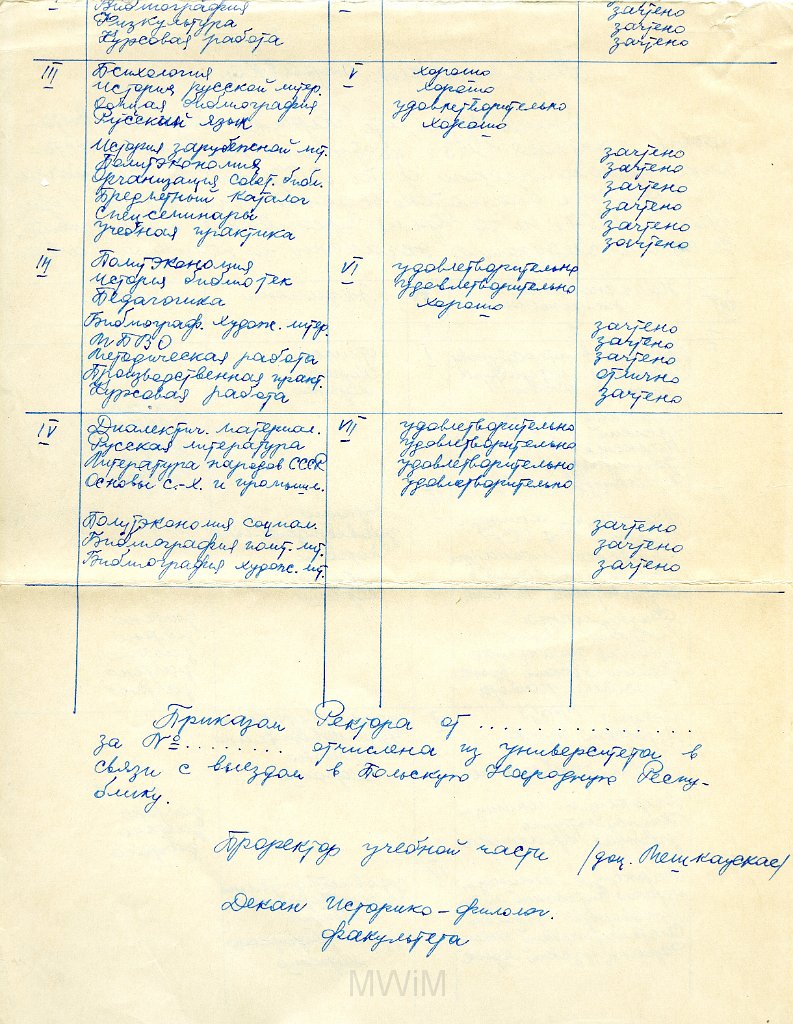 Библиография
Физкультура зачтено
Курсовая работа зачтено
III Психология V хорошо
История русской литер. хорошо
Общая библиография удовлетворительно
Русский язык хорошо
История зарубежной лит. зачтено
Политэкономия зачтено
Организация совет. библ. зачтено
Предметный каталог зачтено
Спецсеминары зачтено
Учебная практика зачтено
III Политэкономия VI удовлетворительно
История библиотек удовлетворительно
Педагогика хорошо
Библиограф. худож. литер. зачтено
МПВО зачтено
Методическая работа зачтено
Производственная практ. отлично
Курсовая работа зачтено
IV Диалектич. материал. VII удовлетворительно
Русская литература удовлетворительно
Литература народов СССР удовлетворительно
Основы с.-х. и промышл. удовлетворительно
Политэкономия социал. зачтено
Библиография полит. лит. зачтено
Библиография худож. лит. зачтено
Приказом Ректора от ................
за №........ отчислена из университета в
связи с выездом в Польскую Народную Респу-
блику.
Проректор учебной части /доц. Мешкаускас/
Декан Историко-филолог.
факультета
MWiM